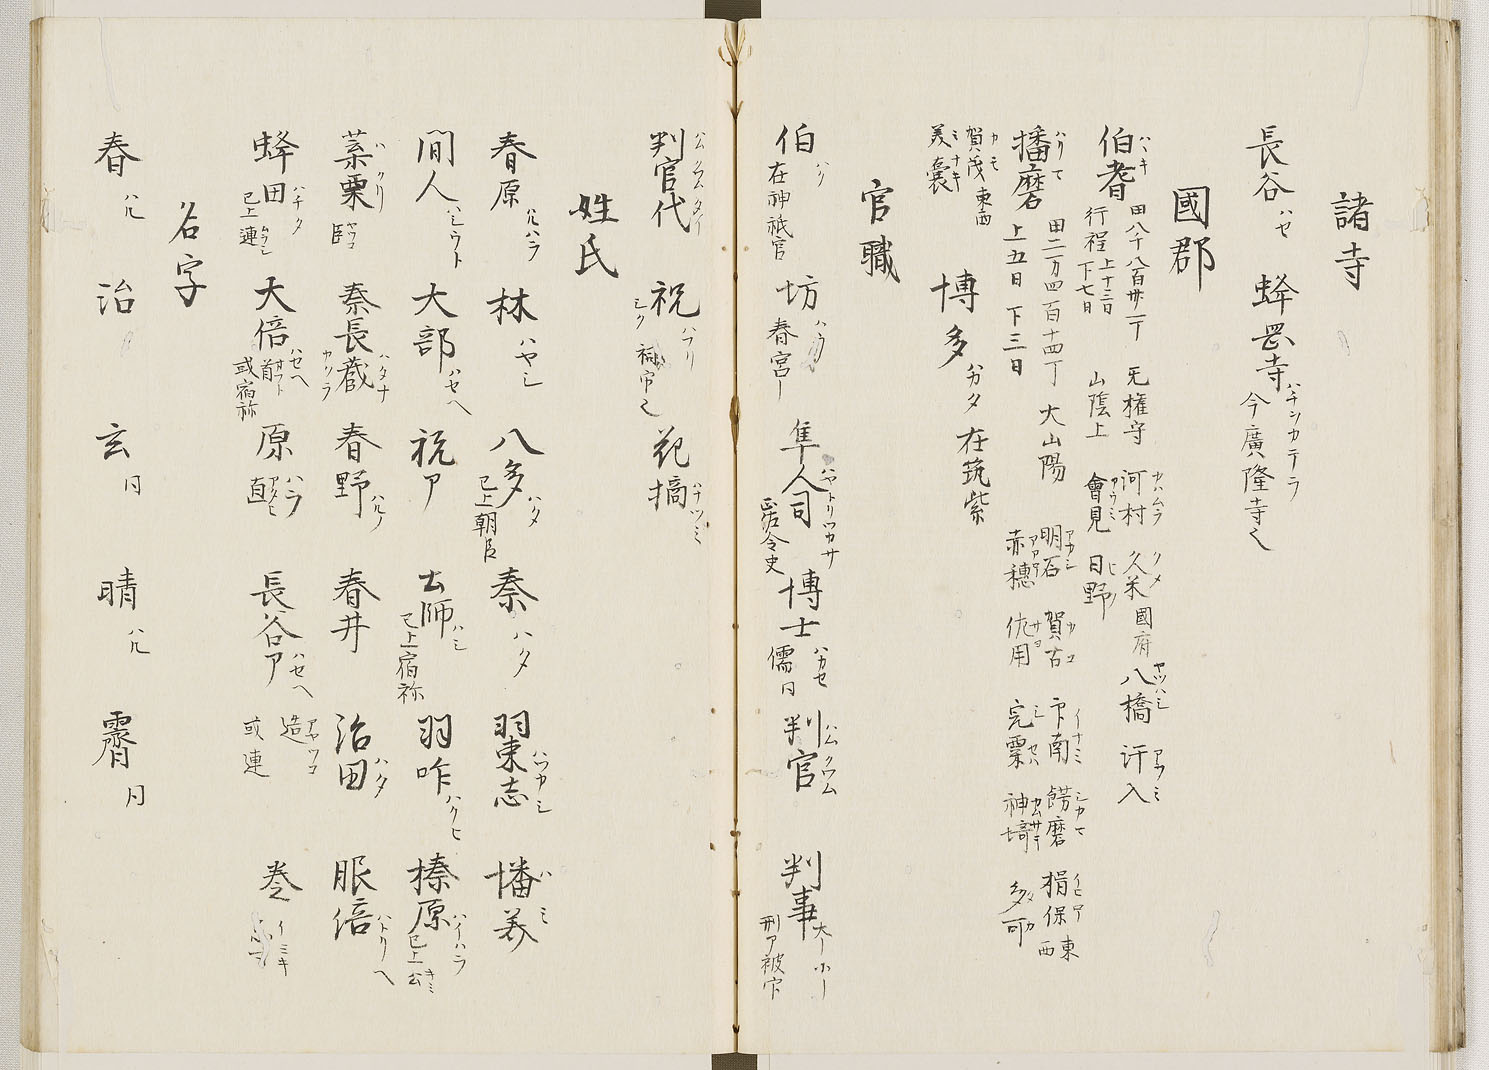 諸寺
長谷 ハセ 蜂岡寺 ハチシカテラ 今廣隆寺也
國郡
伯耆 ハヽキ 田八千八百卅一丁 行程上十三日下七日 无権守 山陰上 河村 カハムラ 久米 クメ 國府 八橋 ヤツハシ 汗入 アフミ 會見 アウミ 日野 ヒノ
播磨 ハリマ 田二万四百十四丁 上五日 下三日 大山陽 明石 アカシ 賀古 カコ 印南 イナミ 餝磨 シカマ 揖保 イヒホ 東西 赤穂 アカホ 佐用 サヨ 完粟 シサハ 神埼 カムサキ 多可 タカ
賀茂 カモ 東西 美囊 ミナキ 博多 ハカタ 在筑紫
官職
伯 ハク 在神祇官 坊 ハウ 春宮ー 隼人司 ハヤトリツカサ 正佑令史 博士 ハカセ 儒同 判官 ハムクワム 判事 大ー少ー 刑ア被官
判官代 ハムクワムタイ 祝 ハフリ 花摘 ハナツミ
姓氏
春原 ハルハラ 林 ハヤシ 八多 ハタ 已上朝臣 秦 ハタ 羽束志 ハツカシ 幡美 ハミ
間人 ハシウト 大部 ハセヘ 祝ア 土師 ハシ 已上宿祢 羽咋 ハクヒ 榛原 ハイハラ 已上公 キミ
葉栗 ハクリ 臣 秦長蔵 ハタナカクラ 春野 ハルノ 春井 治田 ハタ 服倍 ハトリヘ
蜂田 ハチタ 已上連 ムラシ 大倍 ハセヘ 首 或宿祢 原 ハラ 直 アタヒ 長谷ア ハセヘ 造 ミヤツコ 或連 巻 イミキ
名字
春 ハル 治 玄 同 晴 ハル 霽 同